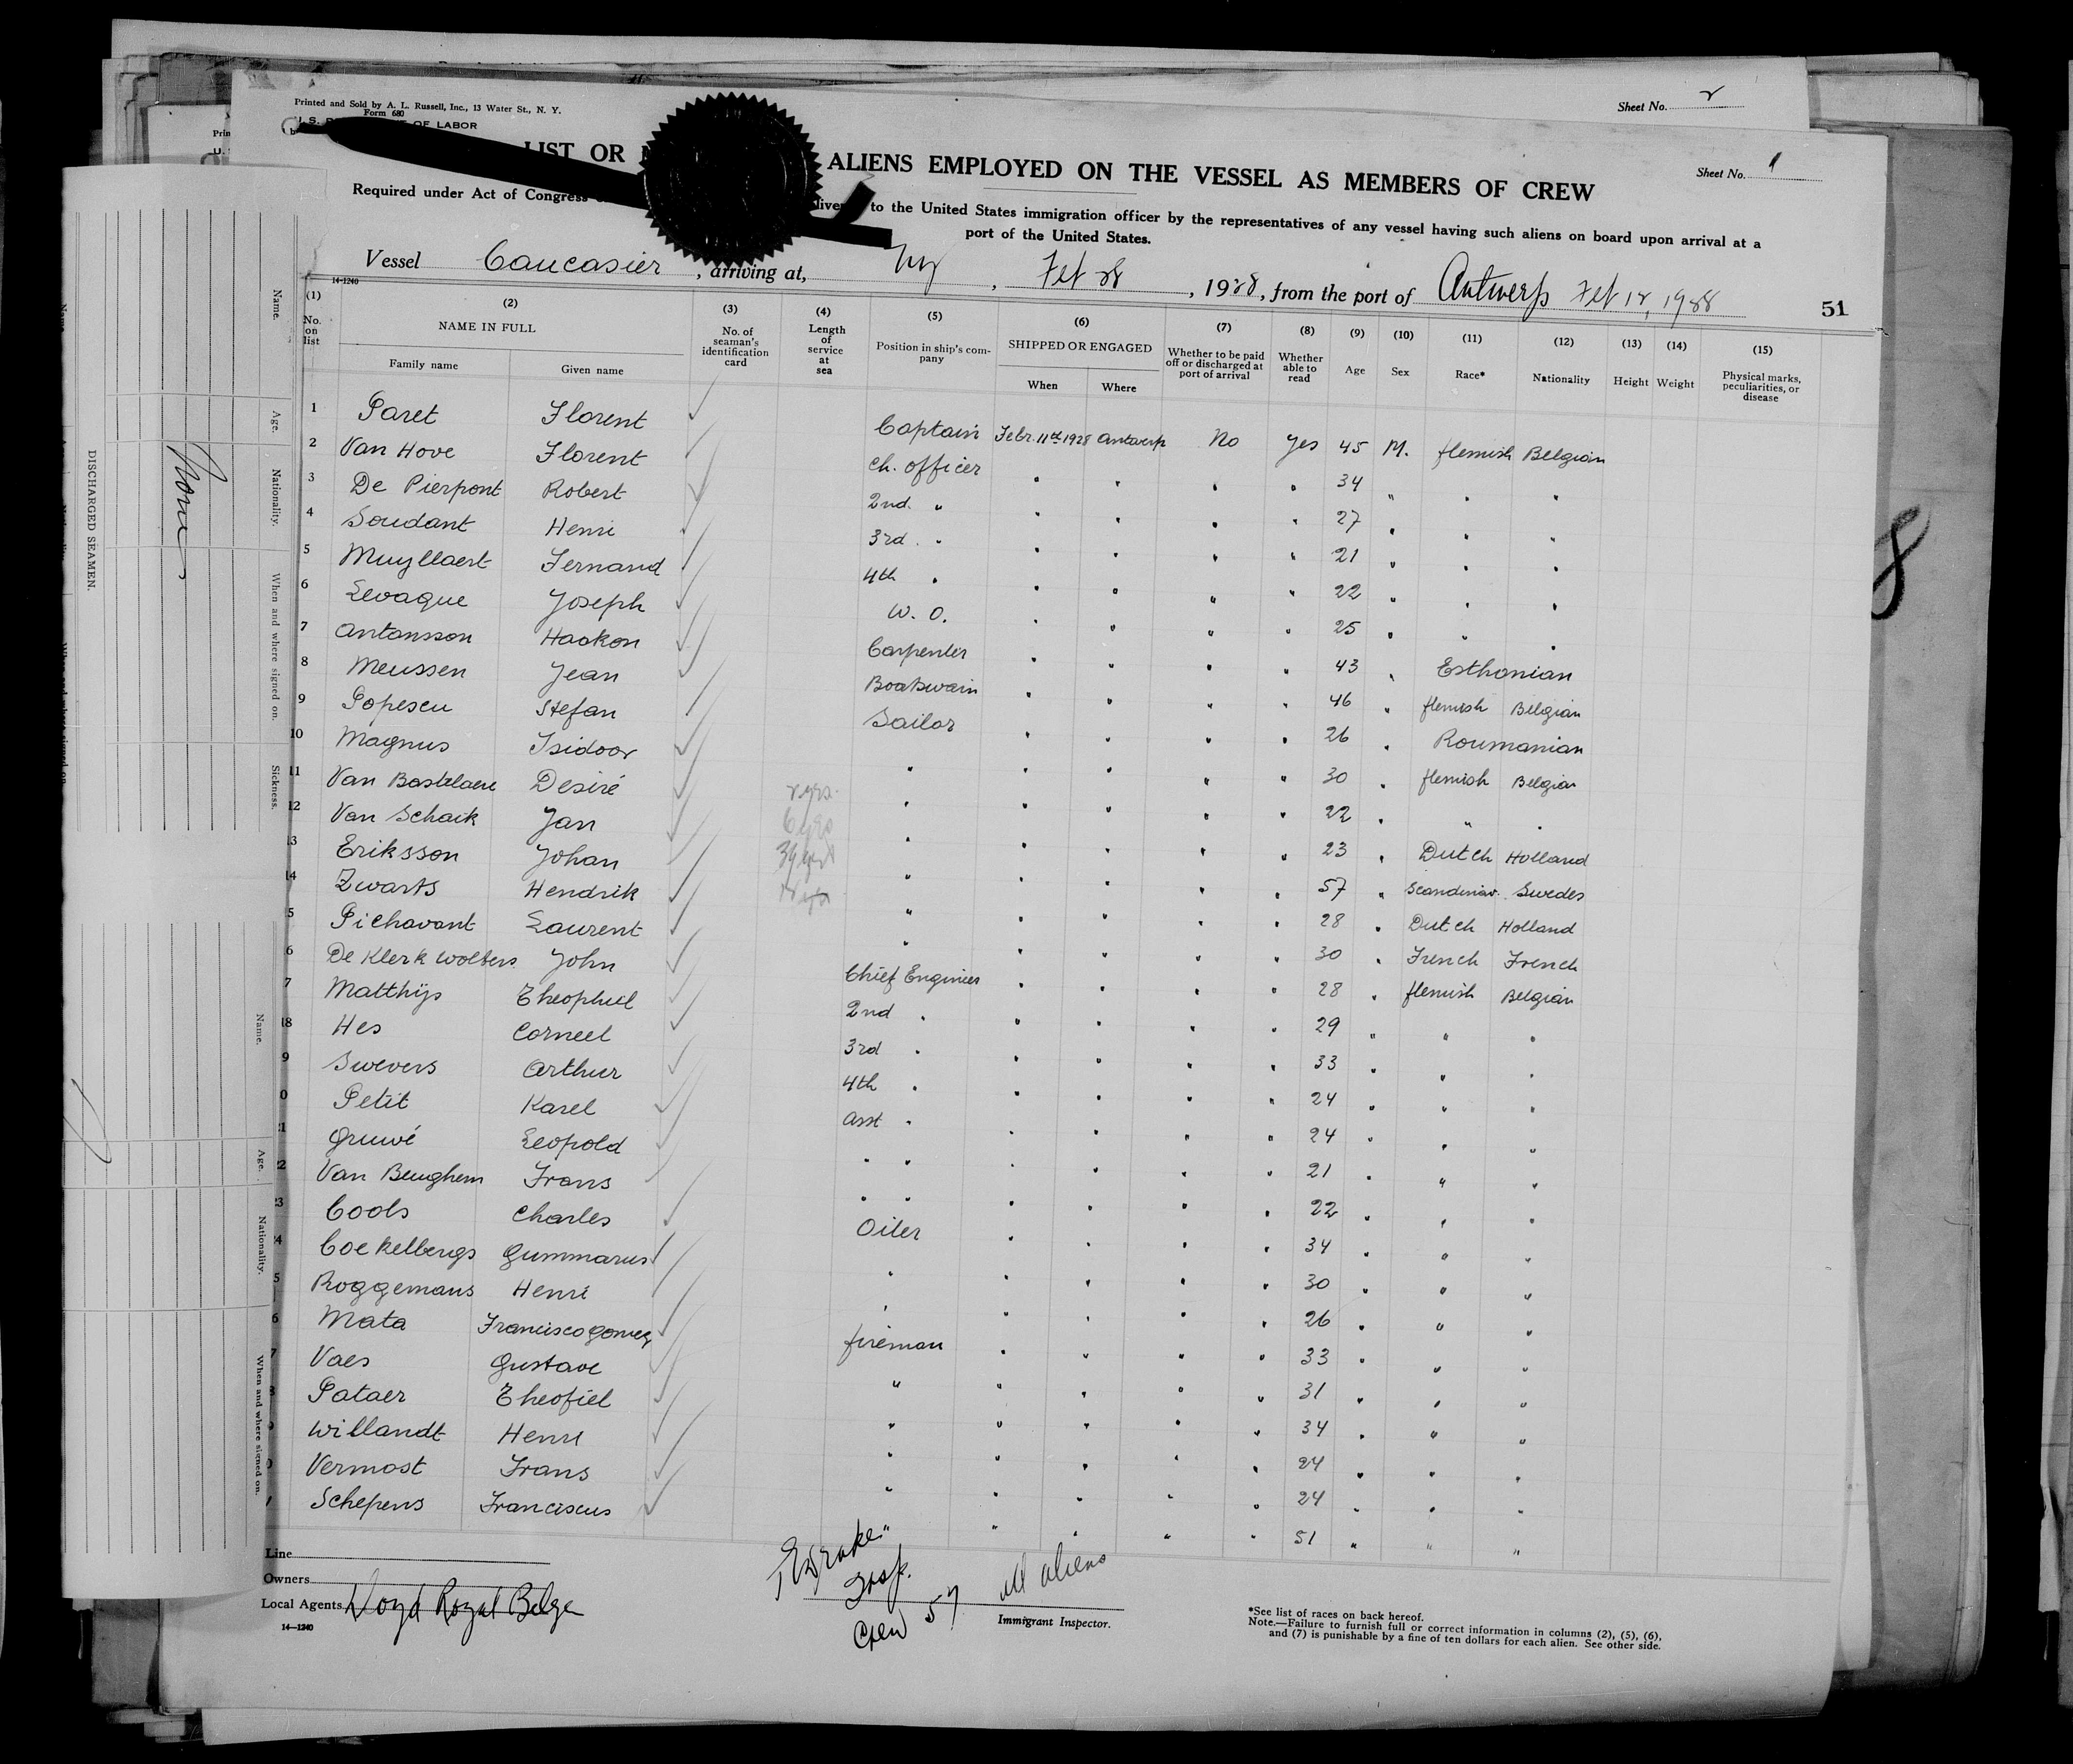 Sheet No. 2
Printed and Sold by A. L. Russell, Inc., 13 Water St., N. Y.
Form 680
U. S. OF LABOR
Sheet No. 1
LIST OR ALIENS EMPLOYED ON THE VESSEL AS MEMBERS OF CREW
Required under Act of Congress to the United States immigration officer by the representatives of any vessel having such aliens on board upon arrival at a
port of the United States.
Vessel Caucasier, arriving at, NY, Feb 28, 1928, from the port of Antwerp Feb 12, 1928
14-1240
51
(1) No. on list (2) NAME IN FULL Family name Given name (3) No. of seaman's identification card (4) Length of service at sea (5) Position in ship's company (6) SHIPPED OR ENGAGED When Where (7) Whether to be paid off or discharged at port of arrival (8) Whether able to read (9) Age (10) Sex (11) Race* (12) Nationality (13) Height (14) Weight (15) Physical marks, peculiarities, or disease
1 Paret Florent Captain Febr. 11th 1928 Antwerp No Yes 45 M. flemish Belgian
2 Van Hove Florent ch. officer " " " " 34 " " "
3 De Pierpont Robert 2nd. " " " " " 27 " " "
4 Soudant Henri 3rd. " " " " " 21 " " "
5 Muyllaert Fernand 4th " " " " " 22 " " "
6 Levaque Joseph W. O. " " " " 25 " " "
7 Antonsson Haakon Carpenter " " " " 43 " Esthonian
8 Meussen Jean Boatswain " " " " 46 " flemish Belgian
9 Popescu Stefan Sailor " " " " 26 " Roumanian
10 Magnus Isidoor " " " " " 30 " flemish Belgian
11 Van Bastelaere Desiré 2 yrs. " " " " " 22 " " "
12 Van Schaik Jan 6 yrs " " " " " 23 " Dutch Holland
13 Eriksson Johan " " " " " 57 " Scandinav. Swedes
14 Zwarts Hendrik " " " " " 28 " Dutch Holland
5 Pichavant Laurent " " " " " 30 " French French
6 De Klerk Wolters John Chief Engineer " " " " 28 " flemish Belgian
7 Matthijs Theophiel 2nd " " " " " 29 " " "
18 Hes Corneel 3rd " " " " " 33 " " "
9 Swevers Arthur 4th " " " " " 24 " " "
0 Petit Karel Asst " " " " " 24 " " "
21 Gruwé Leopold " " " " " " 21 " " "
22 Van Beughem Frans " " " " " " 22 " " "
23 Cools Charles Oiler " " " " 34 " " "
24 Coekelbergs Gummarus " " " " " 30 " " "
5 Roggemans Henri " " " " " 26 " " "
6 Mata Francisco Gomez fireman " " " " 33 " " "
7 Vaes Gustave " " " " " 31 " " "
8 Pataer Theofiel " " " " " 34 " " "
9 Willandt Henri " " " " " 24 " " "
0 Vermost Frans " " " " " 24 " " "
1 Schepens Franciscus " " " " 51 " " "
Line
Owners
Local Agents Lloyd Royal Belge
14—1240
Insp.
Crew 57 all aliens
Immigrant Inspector.
*See list of races on back hereof.
Note.—Failure to furnish full or correct information in columns (2), (5), (6),
and (7) is punishable by a fine of ten dollars for each alien. See other side.
DISCHARGED SEAMEN.
Name.
Age.
Nationality.
When and where signed on.
Sickness.
None
Name.
Age.
Nationality.
When and where signed on.
8